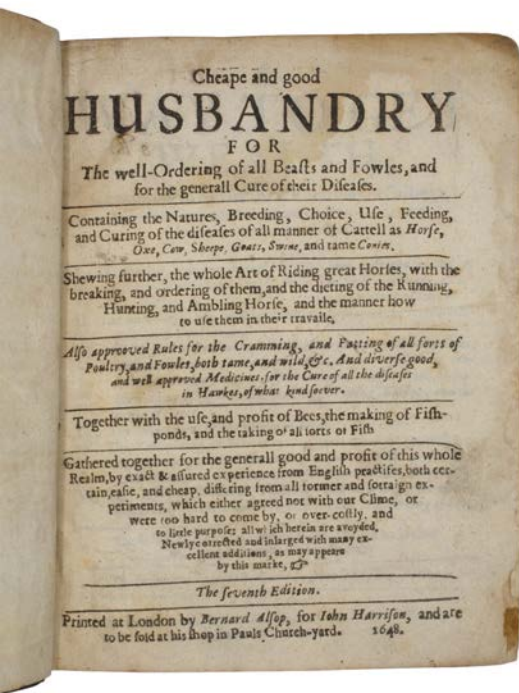 Cheape and good
HUSBANDRY
FOR
The well-Ordering of all Beaſts and Fowles, and
for the generall Cure of their Diſeaſes.
Containing the Natures, Breeding, Choice, Uſe, Feeding,
and Curing of the diſeases of all manner of Cattell as Horſe,
Oxe, Cow, Sheepe, Goats, Swine, and tame Conies.
Shewing further, the whole Art of Riding great Horſes, with the
breaking, and ordering of them, and the dieting of the Running,
Hunting, and Ambling Horſe, and the manner how
to uſe them in their travaile.
Alſo approoved Rules for the Cramming, and Fatting of all ſorts of
Poultry, and Fowles, both tame, and wild, &c. And diverſe good,
and well approved Medicines, for the Cure of all the diſeaſes
in Hawkes, of what kind ſoever.
Together with the uſe, and profit of Bees, the making of Fiſh-
ponds, and the taking of all ſorts of Fiſh
Gathered together for the generall good and profit of this whole
Realm, by exact & aſſured experience from Engliſh practiſes, both cer-
tain, eaſie, and cheap, differing from all former and forraign ex-
periments, which either agreed not with our Clime, or
were too hard to come by, or over-coſtly, and
to little purpoſe: all which herein are avoyded,
Newly corrected and inlarged with many ex-
cellent additions, as may appeare
by this marke, ☞
The ſeventh Edition.
Printed at London by Bernard Alſop, for Iohn Harriſon, and are
to be ſold at his ſhop in Pauls Church-yard. 1648.